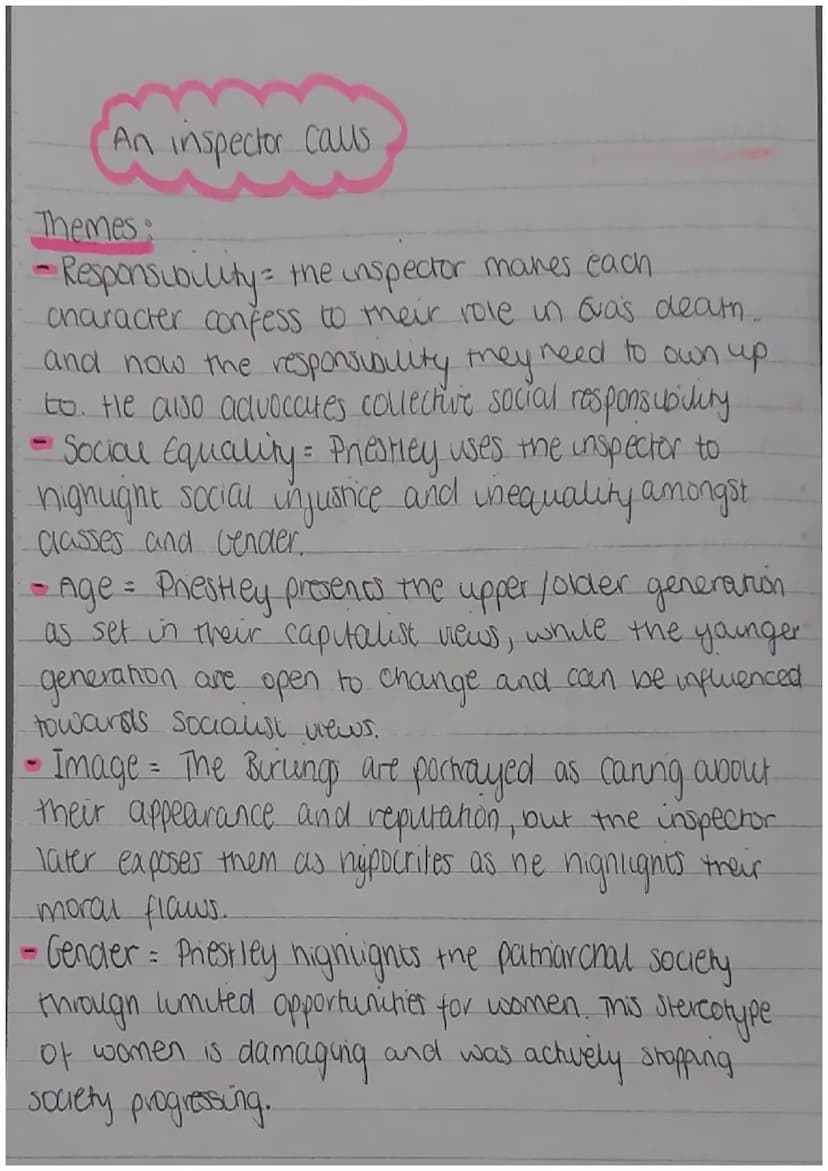 An inspector Calls
Themes:
- Responsibility = the inspector makes each
character confess to their role in Eva's death
and now the responsibility they need to own up
to. He also advocates collective social responsibility
- Social Equality = Priestley uses the inspector to
highlight social injustice and inequality amongst
classes and Gender.
- Age = Priestley presents the upper/older generation
as set in their capitalist views, while the younger
generation are open to change and can be influenced
towards socialist views.
- Image = The Birlings are portrayed as caring about
their appearance and reputation, but the inspector
later exposes them as hypocrites as he highlights their
moral flaws.
- Gender = Priestley highlights the patriarchal society
through limited opportunities for women. This stereotype
of women is damaging and was actively stopping
society progressing.